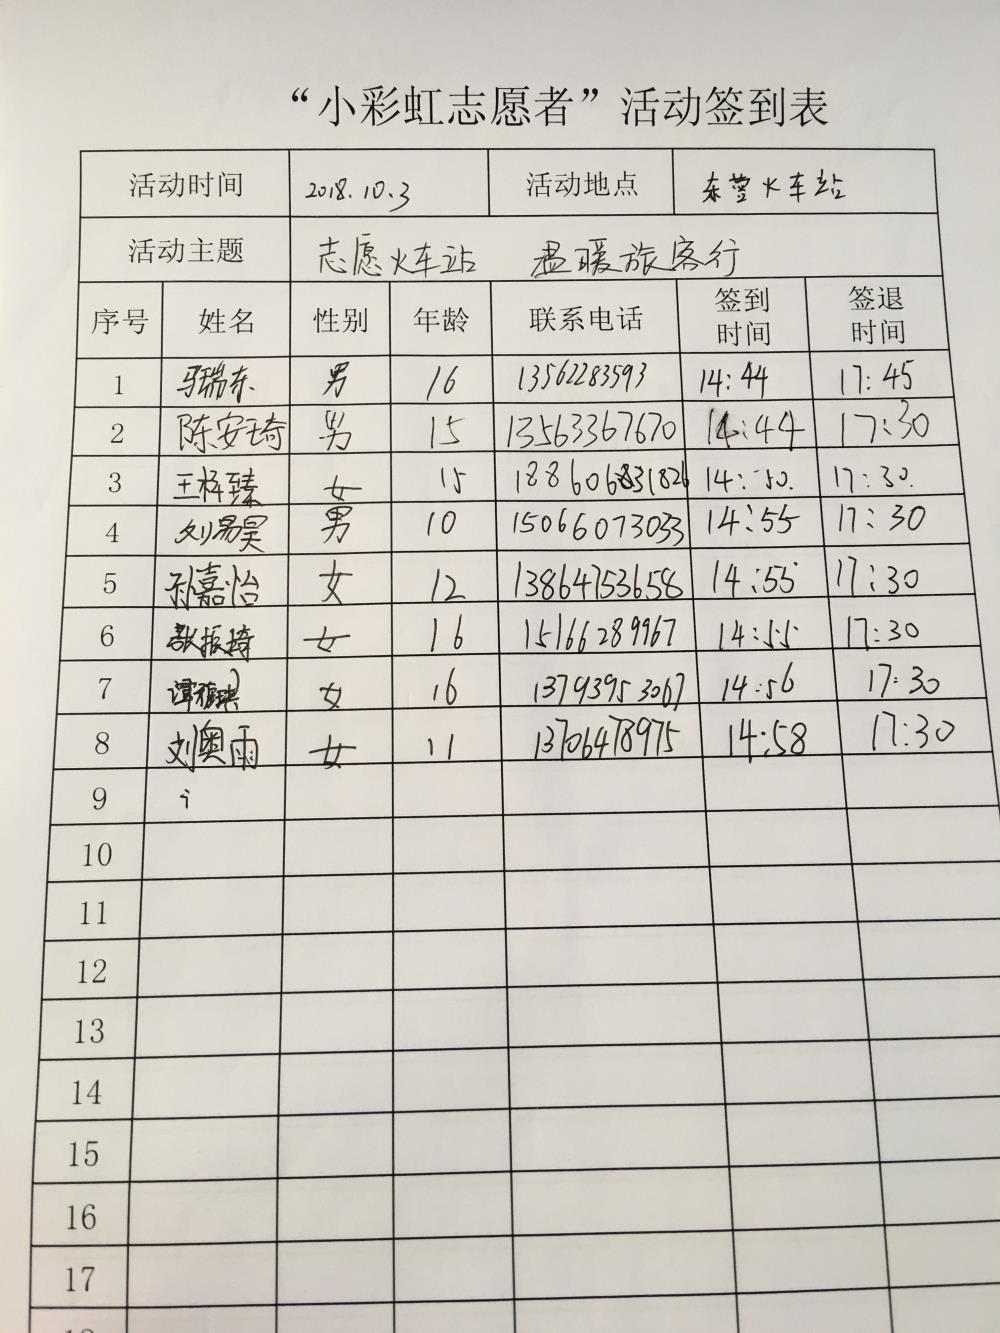 “小彩虹志愿者”活动签到表
活动时间 2018.10.3 活动地点 东营火车站
活动主题 志愿火车站 温暖旅客行
序号 姓名 性别 年龄 联系电话 签到时间 签退时间
1 马瑞东 男 16 13562283593 14:44 17:45
2 陈安琦 男 15 13563367670 14:44 17:30
3 王梓臻 女 15 14:50. 17:30.
4 刘易昊 男 10 15066073033 14:55 17:30
5 孙嘉怡 女 12 13864753658 14:55 17:30
6 张振琦 女 16 15166289967 14:55 17:30
7 女 16 13793953067 14:56 17:30
8 刘奥雨 女 11 13706478975 14:58 17:30
9
10
11
12
13
14
15
16
17